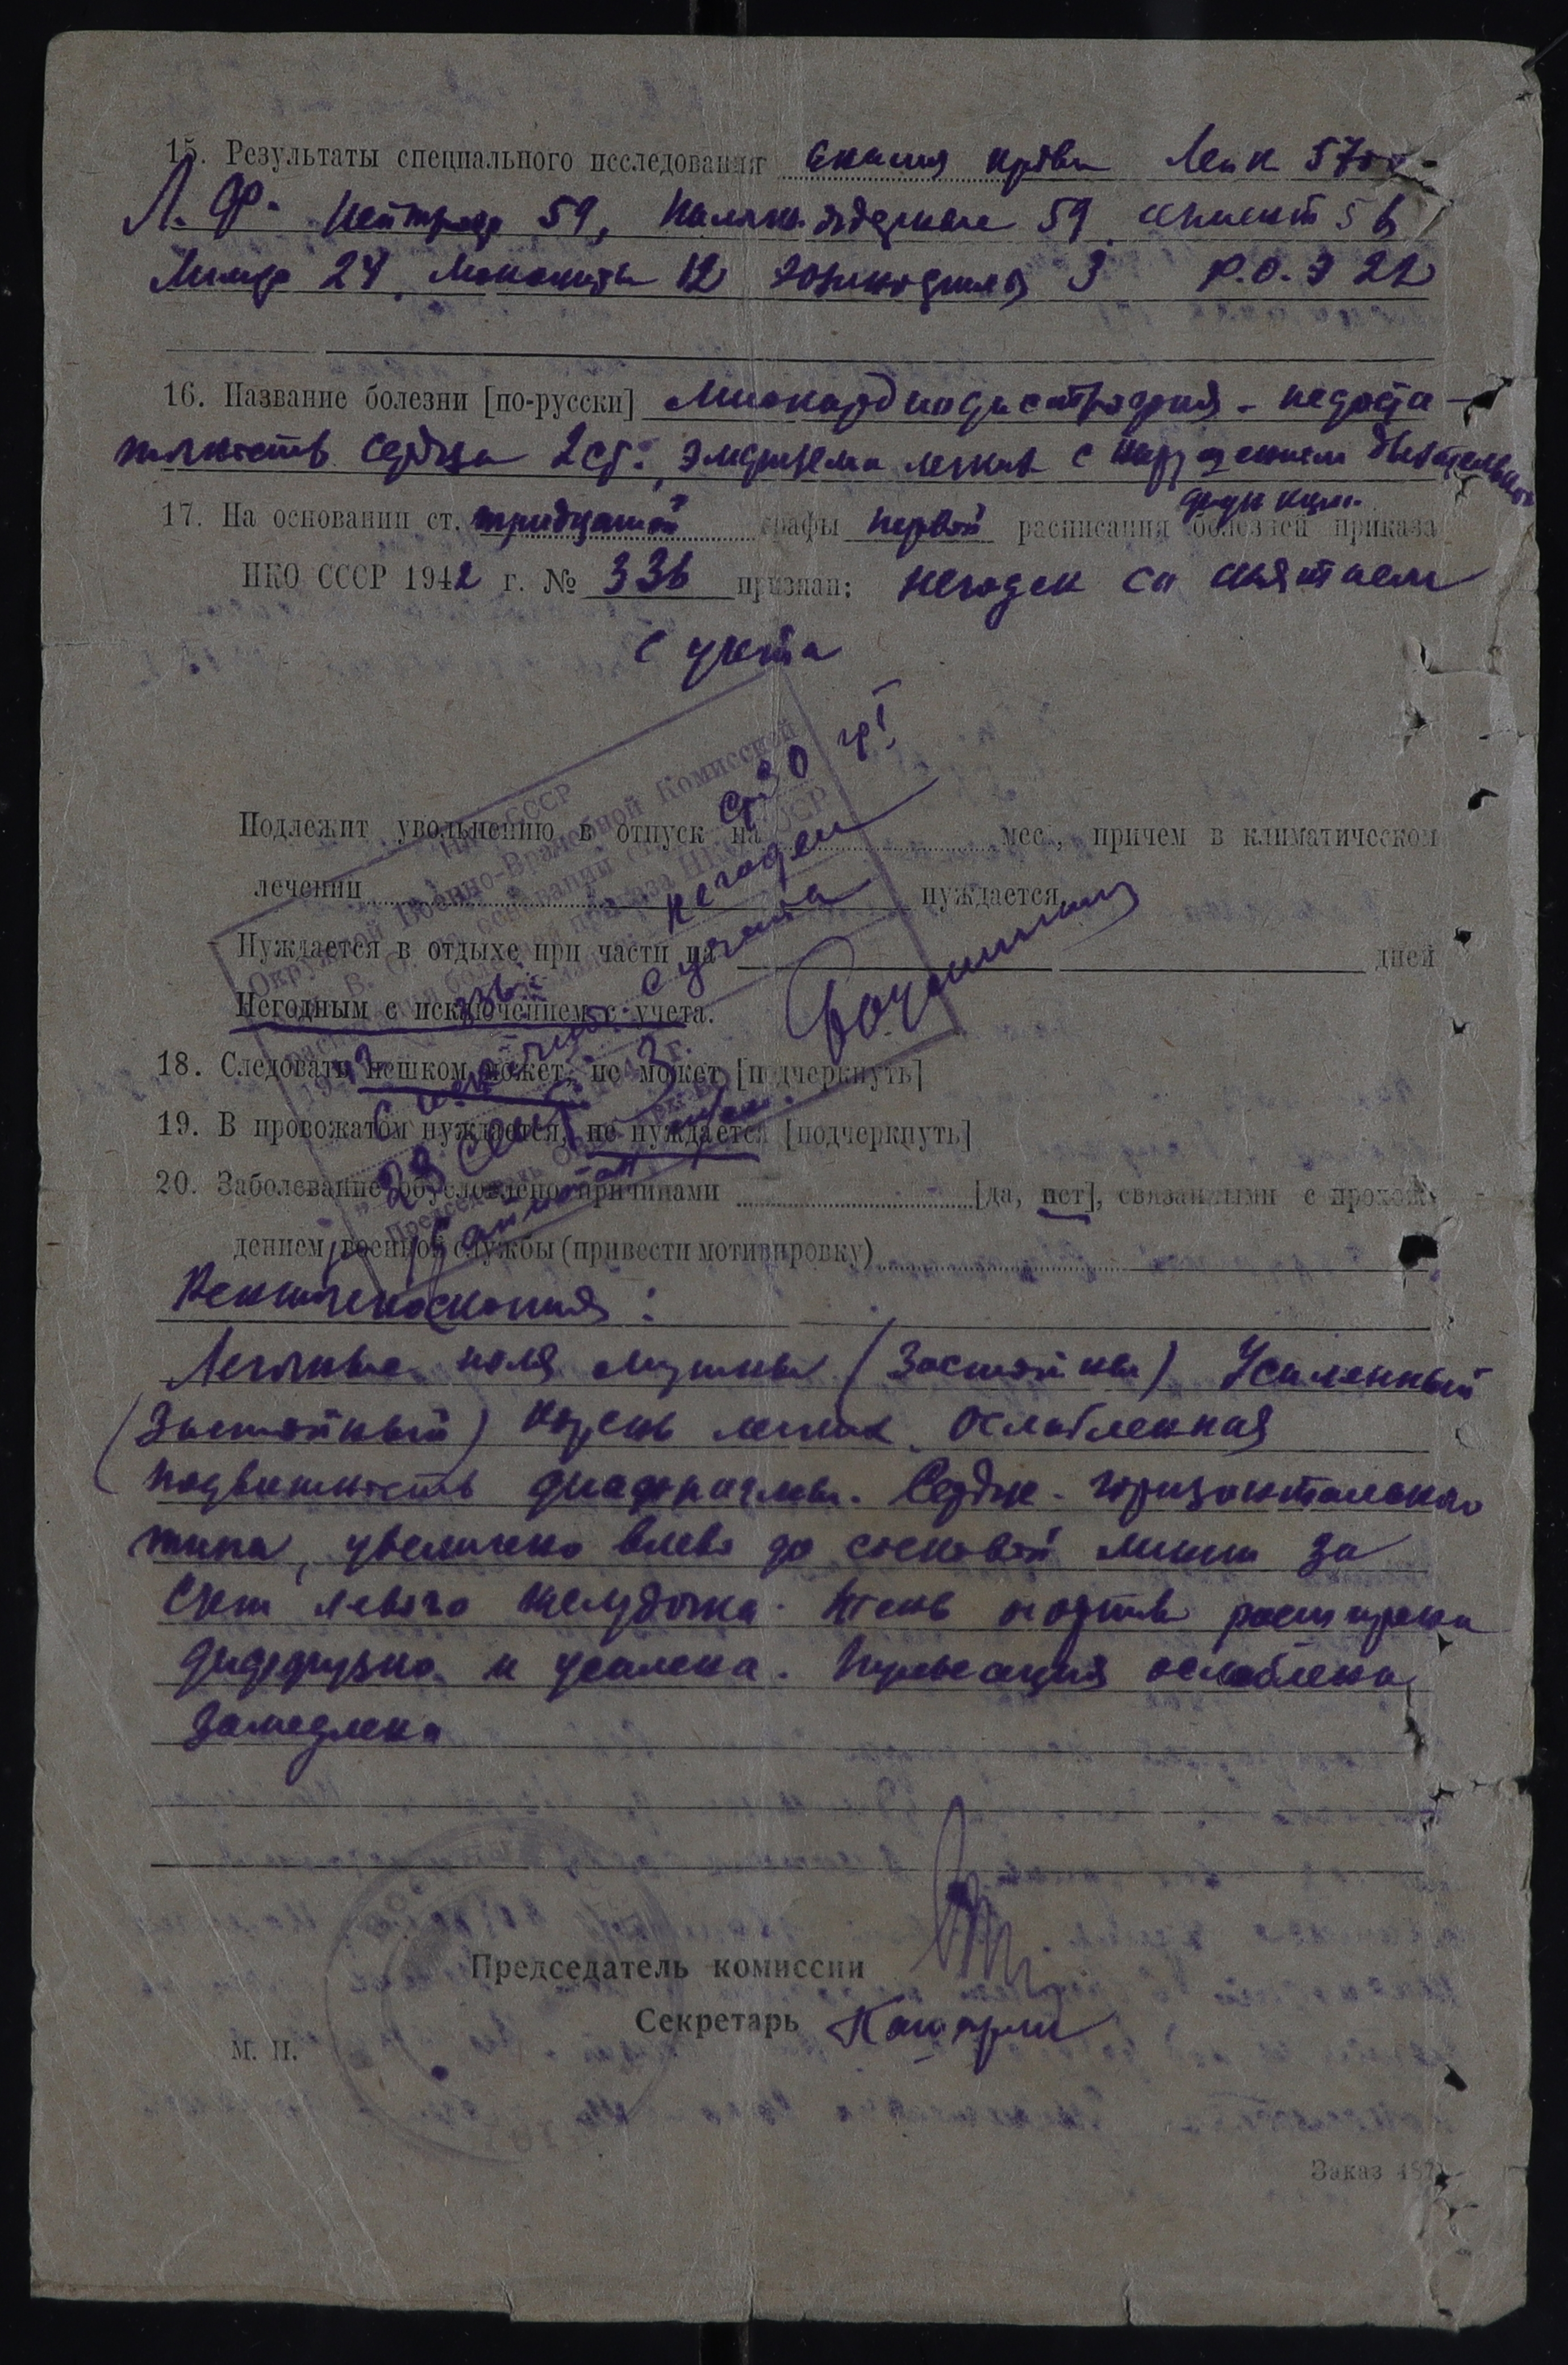 15. Результаты специального исследования крови Лейк 5700
Л. Ф. 59, 59 сегмент 56
Лимф 24, Моноциты 12 Эозинофилы 3 Р.О.Э 22
16. Название болезни [по-русски] Миокардиодистрофия - недоста-
точность сердца 2 ст; эмфизема легких с нарушением дыхательной
функции.
17. На основании ст. тридцатой графы первой расписания болезней приказа
НКО СССР 1942 г. № 336 признан: негоден со снятием
с учета
Подлежит увольнению в отпуск на мес., причем в климатическом
лечении нуждается
Нуждается в отдыхе при части на дней
Негодным с исключением с учета.
НКО СССР
Окружной Военно-Врачебной Комиссией
ст 30 гр I
336
негоден
с исключ. с учета
28 сент 1943 г.
18. Следовать пешком может, не может [подчеркнуть]
19. В провожатом нуждается, не нуждается [подчеркнуть]
20. Заболевание обусловлено причинами [да, нет], связанными с прохож-
дением военной службы (привести мотивировку)
Рентгеноскопия:
Легочные поля мутны (застойны) Усиленный
(застойный) корень легких. Ослабленная
подвижность диафрагмы. Сердце - горизонтального
типа, увеличено влево до сосковой линии за
счет левого желудочка. Тень аорты расширена
диффузно и усилена. Пульсация ослаблена,
замедлена
Председатель комиссии
Секретарь
М. П.
Заказ 487